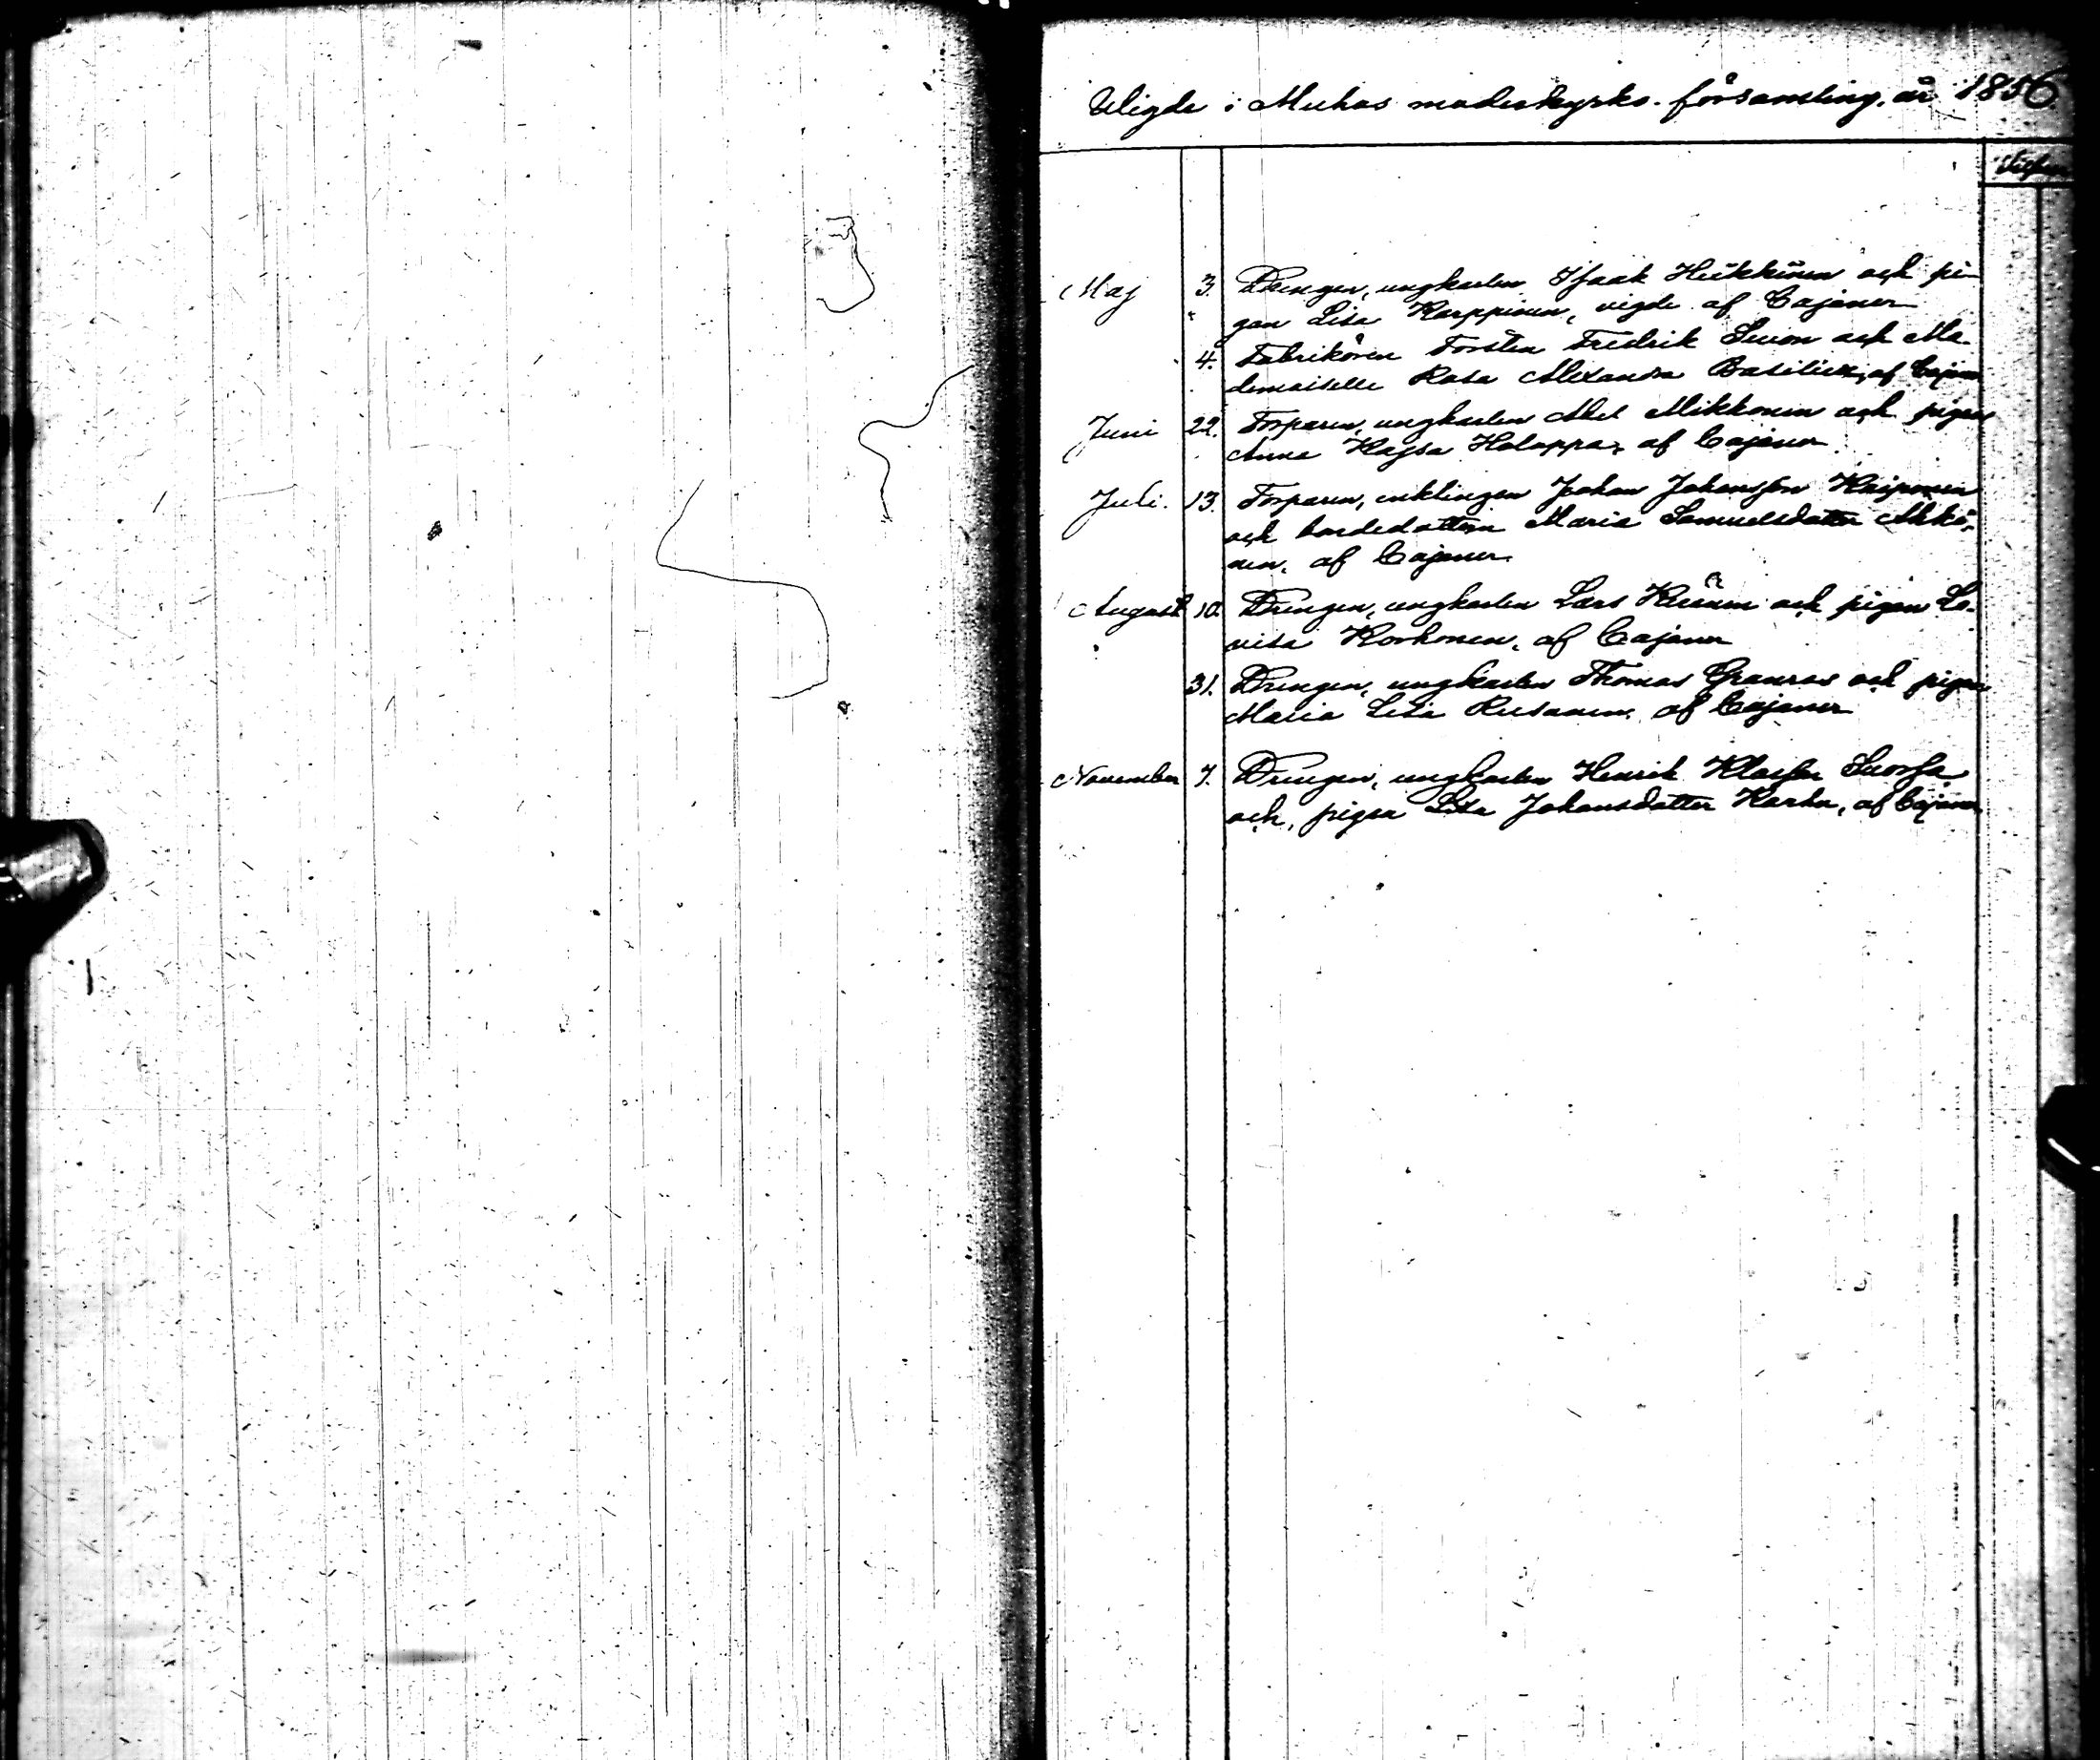 Wigde i Muhos moderkyrko-församling, år 1856.
Maj 3. Drengen, ungkarlen Isaak Heikkinen och pi-
gan Lisa Karppinen, vigde af Cajaner
4. Fabrikören Torsten Fredrik Snon och Ma-
demoiselle Rosa Alexandra Basilier, af Cajaner
Juni 22. Torparen, ungkarlen Abel Mikkonen och pigan
Anna Kajsa Holappa, af Cajaner
Juli. 13. Torparen, enklingen Johan Johansson Kaiponen
och bondedottren Maria Samuelsdotter Mikko-
nen, af Cajaner
August 10. Drengen, ungkarlen Lars och pigan Lo-
visa Korhonen, af Cajaner
31. Drengen, ungkarlen Thomas Granros och pigan
Maria Lisa Rusanen, af Cajaner
November 7. Drengen, ungkarlen Henrik Suorsa
och, pigan Lisa Johansdotter Karhu, af Cajaner